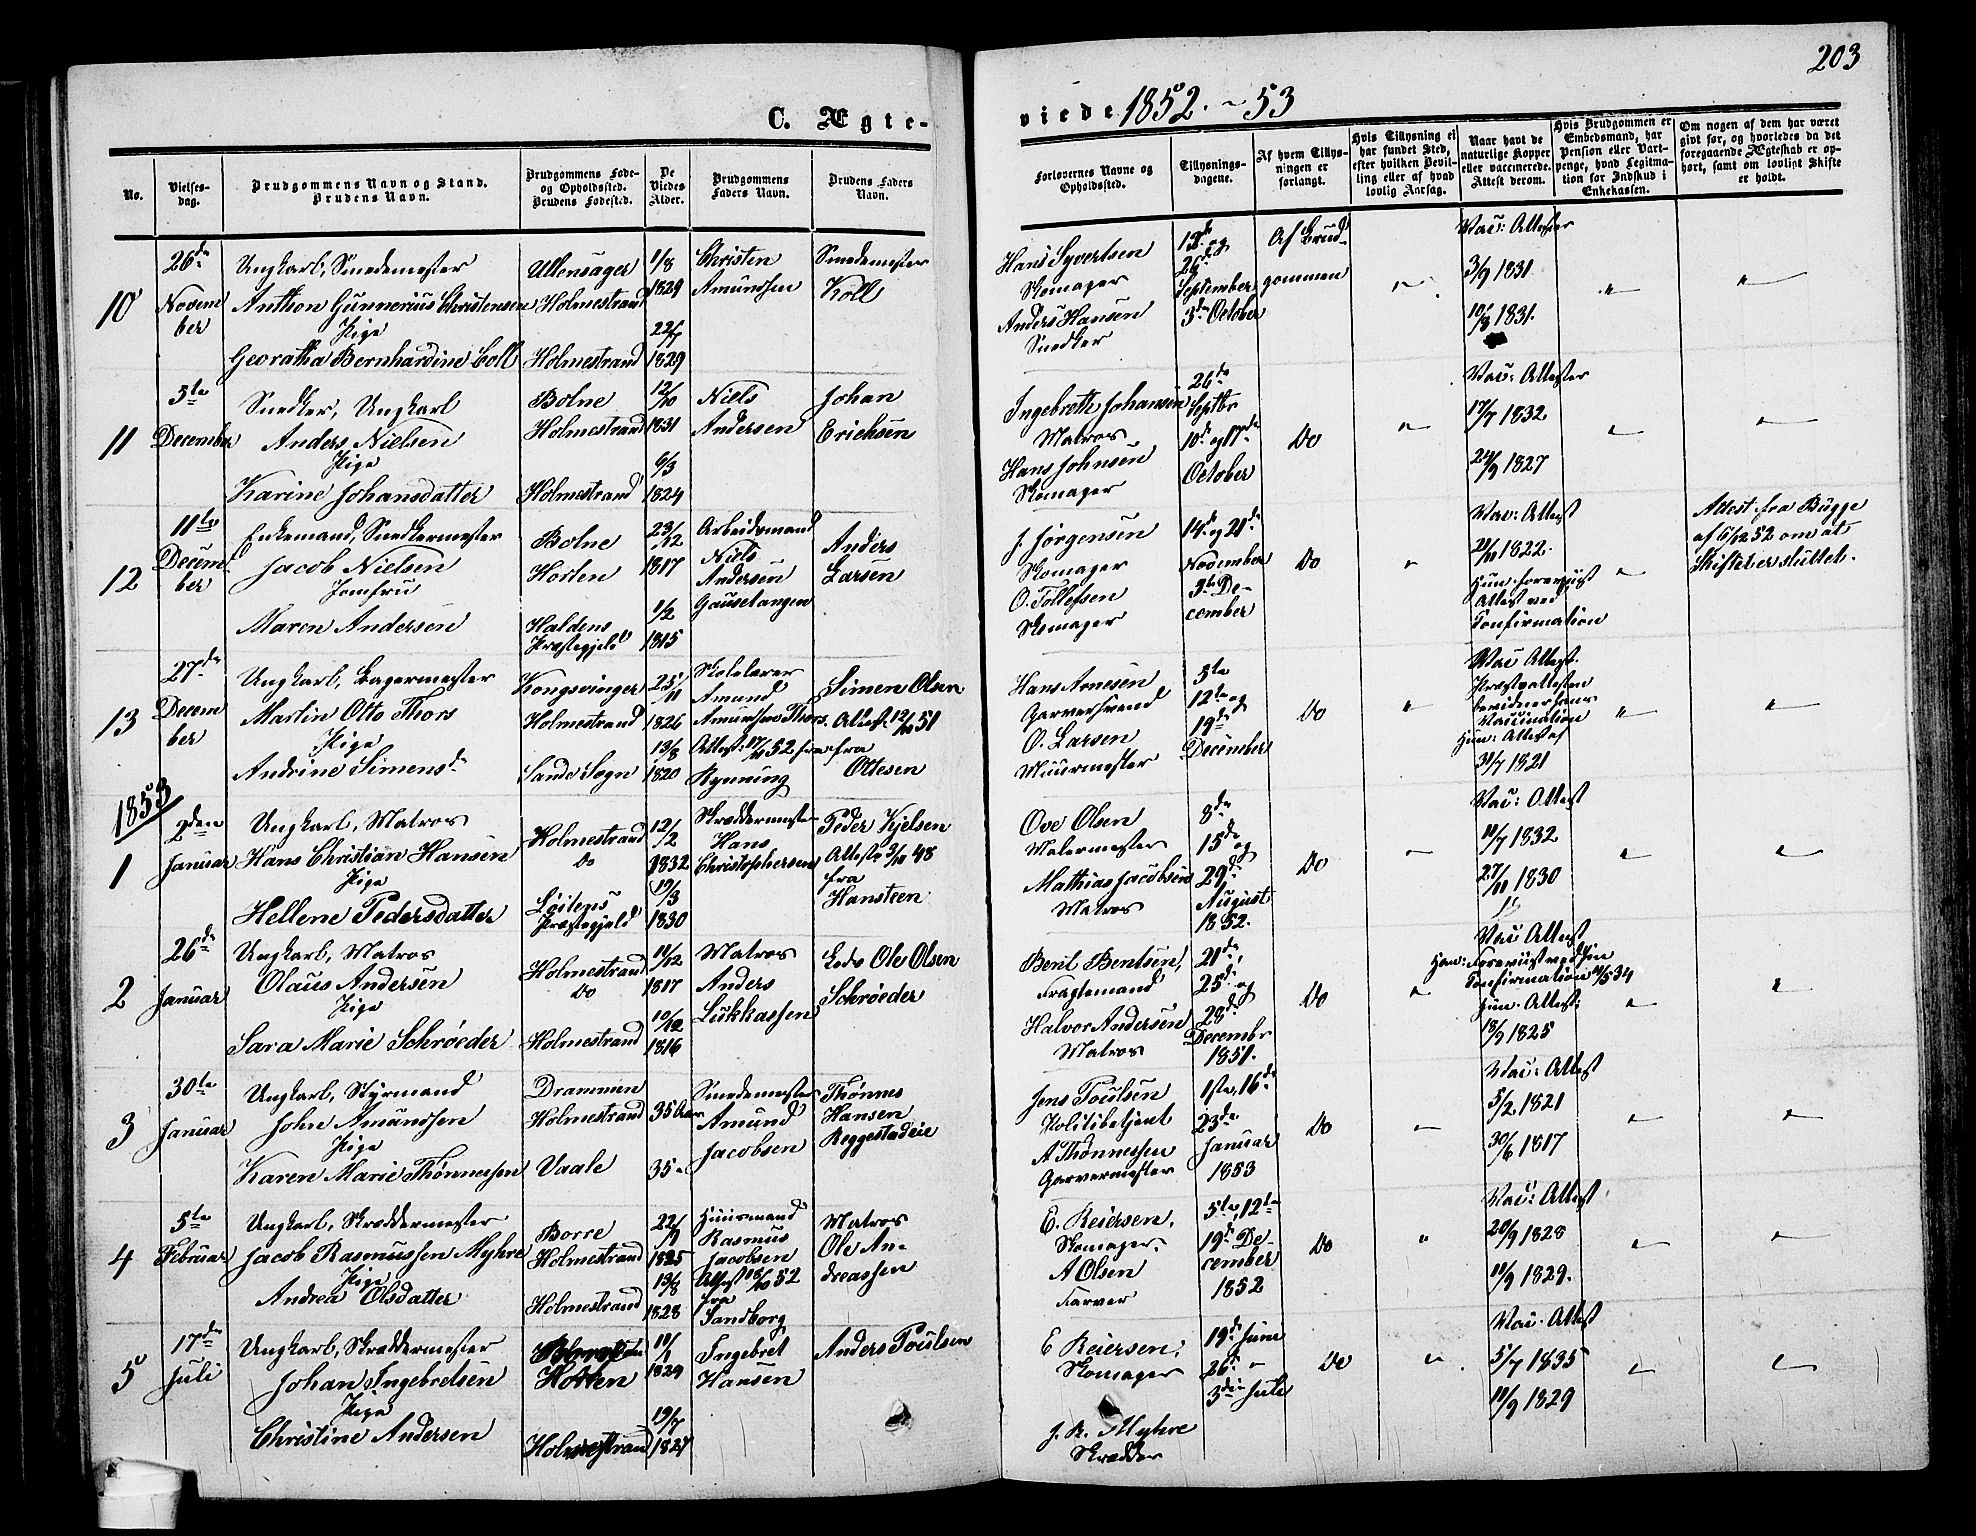 203
C. Ægte-
viede 1852. ~ 53
No.
Vielses-
dag.
Brudgommens Navn og Stand.
Brudens Navn.
Brudgommens Føde-
og Opholdssted.
Brudens Fødested.
De
Viedes
Alder.
Brudgommens
Faders Navn.
Brudens Faders
Navn.
Forlovernes Navne og
Opholdssted.
Tillysnings-
dagene.
Af hvem Tillys-
ningen er
forlangt.
Hvis Tillysning ei
har fundet Sted,
efter hvilken Bevil-
ling eller af hvad
lovlig Aarsag.
Naar havt de
naturlige Kopper
eller vaccinerede.
Attest derom.
Hvis Brudgommen er
Embedsmand, har
Pension eller Vart-
penge, hvad Legitima-
tion for Indskud i
Enkekassen.
Om nogen af dem har været
gift før, og hvorledes da det
foregaaende Ægteskab er op-
hørt, samt om lovligt Skifte
er holdt.
10
26de
Novem
ber
Ungkarl, Smedemester
Anthon Gunnerius Christensen
Pige
Georatha Bernhardine Coll
Ullensager
Holmestrand
Holmestrand
1/8
1829
22/7
1829
Christen
Amundsen
Smedemester
Koll
Hans Syvertsen
Skomager
Anders Hansen
Snedker
12te og
26de
September
3die October
Af Brud-
gommen
Vac: Attester
3/9 1831
10/8 1831.
11
5te
December
Snedker, Ungkarl
Anders Nielsen
Pige
Karine Johansdatter
Botne
Holmestrand
Holmestrand
12/10
1831
6/3
1824
Niels
Andersen
Johan
Erichsen
Ingebreth Johansen
Matros
Hans Johnsen
Skomager
26de
Septbr
10de og 17de
October
Do
Vac: Attester
17/7 1832
24/9 1827
12
11te
Decem
ber
Enkemand, Snedkermester
Jacob Nielsen
Jomfru
Maren Andersen
Botne
Horten
Haldens
Præstegjeld
23/12
1817
1/2
1815
Arbeidsmand
Niels
Andersen
Gausetangen
Anders
Larsen
J. Jørgensen
Skomager
O. Tollefsen
Skomager
14de og 21de
November
5te De-
cember
Do
Vac: Attest
21/10 1822.
Hun foreviist
Attest ved
Confirmation
Attest fra Bugge
af 6/12 52 om at
Skiftet er sluttet.
13
27de
Decem
ber
Ungkarl, Bagermester
Martin Otto Thors
Pige
Andrine Simensd.
Kongsvinger
Holmestrand
Sande Sogn
25/11
1826
13/8
1820
Skolelærer
Amund
Amundsen Thors.
Attest 17/11 52 fra
Rynning
Simen Olsen
Attest 12/10 51
fra
Ottesen
Hans Arnesen
Garversvend
O. Larsen
Muurmester
5te
12te og
19de
December
Do
Vac Attest.
Præsteattesten
bevidner hans
Vaccination
Hun: Attest af
31/7 1821
1853
1
2den
Januar
Ungkarl, Matros
Hans Christian Hansen
Pige
Hellene Pedersdatter
Holmestrand
Do
Løitens
Præstegjeld
12/2
1832
19/3
1830
Skreddermester
Hans
Christophersen
Peder Kjelsen
Attest 3/10 48
fra
Hansteen
Ove Olsen
Malermester
Mathias Jacobsen
Matros
8de
15de og
29de
August
1852.
Do
Vac: Attest
11/7 1832
27/10 1830
2
26de
Januar
Ungkarl, Matros
Olaus Andersen
Pige
Sara Marie Schrøeder
Holmestrand
Do
Holmestrand
11/12
1817
10/12
1816
Matros
Anders
Lukkassen
Lods Ole Olsen
Schrøeder
Beril Bentsen,
Fragtemand
Halvor Andersen
Matros
21de,
25de og
28de
Decembr
1851.
Do
Vac Attest
Han: Foreviist ved sin
Confirmation 11/5 34
Hun. Attest:
18/9 1825
3
30te
Januar
Ungkarl, Styrmand
John Amundsen
Pige
Karen Marie Thønnessen
Drammen
Holmestrand
Vaale
35 Aar
35 "
Smedemester
Amund
Jacobsen
Thønnes
Hansen
Reggestadeie
Jens Poulsen
Politibetjent
A Thønnessen
Garvermester
1ste, 16de
23de
Januar
1853
Do
Vac: Attest
5/2 1821
30/6 1817
4
5te
Februar
Ungkarl, Skreddermester
Jacob Rasmussen Myhre
Pige
Andrea Olsdatter
Borre
Holmestrand
Holmestrand
22/1
1825
13/8
1828
Huusmand
Rasmus
Jacobsen
Attest 18/10 52
fra
Sandborg
Matros
Ole An-
dreassen
E. Reiersen,
Skomager.
A Olsen
Farver
5te, 12te
19de De-
cember
1852
Do
Vac: Attest
20/9 1828
11/9 1829.
5
17de
Juli
Ungkarl, Skreddermester
Johan Ingebretsen
Pige
Christine Andersen
Horten
Holmestrand
11/1
1829
19/7
1827
Ingebret
Hansen
Anders Poulsen
E Reiersen,
Skomager
J. R. Myhre
Skredder
19de Juni
26de "
3die Juli
Do
Vac. Attest
5/7 1835
11/9 1829